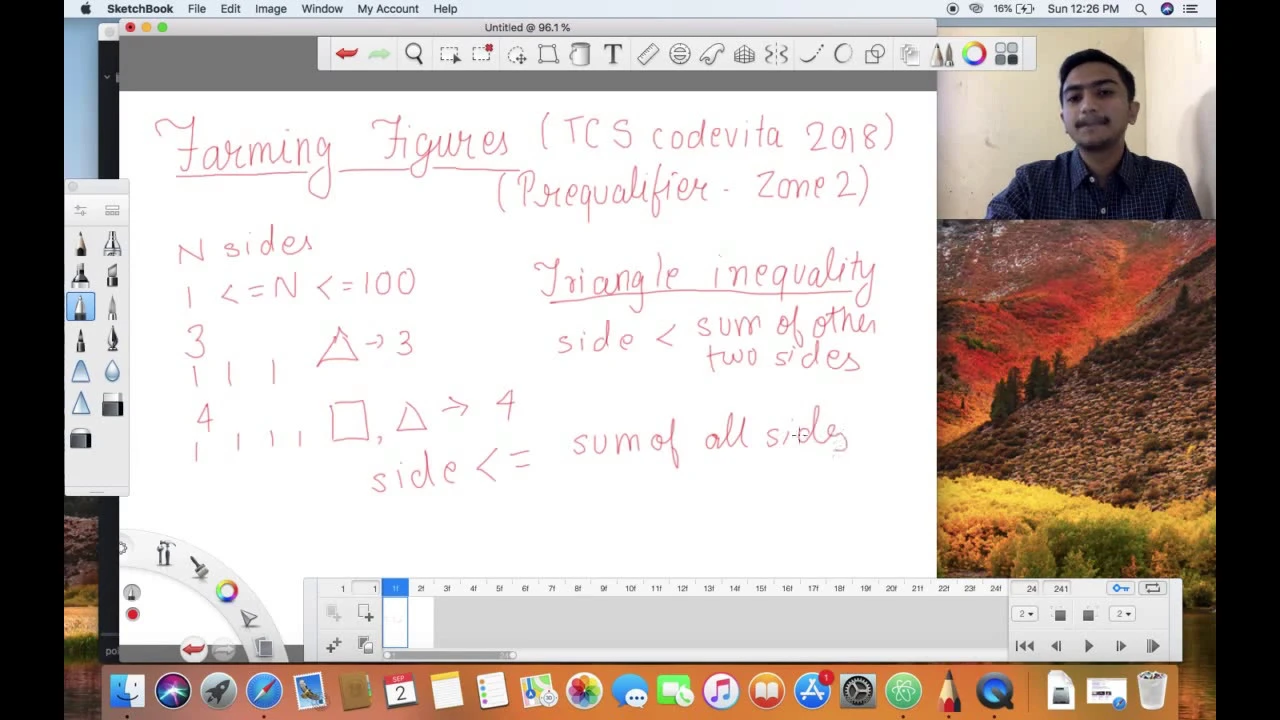 SketchBook File Edit Image Window My Account Help 16% Sun 12:26 PM
Untitled @ 96.1 %
Farming Figures (TCS codevita 2018)
(Prequalifier - Zone 2)
N sides
1 <= N <= 100
3
1 1 1 △ → 3
4
1 1 1 1 □, △ → 4
Triangle inequality
side < sum of other
two sides
side <= sum of all sides
1 1 1f 2f 3f 4f 5f 6f 7f 8f 9f 10f 11f 12f 13f 14f 15f 16f 17f 18f 19f 20f 21f 22f 23f 24f 24 241
2 2
SEP
2
1